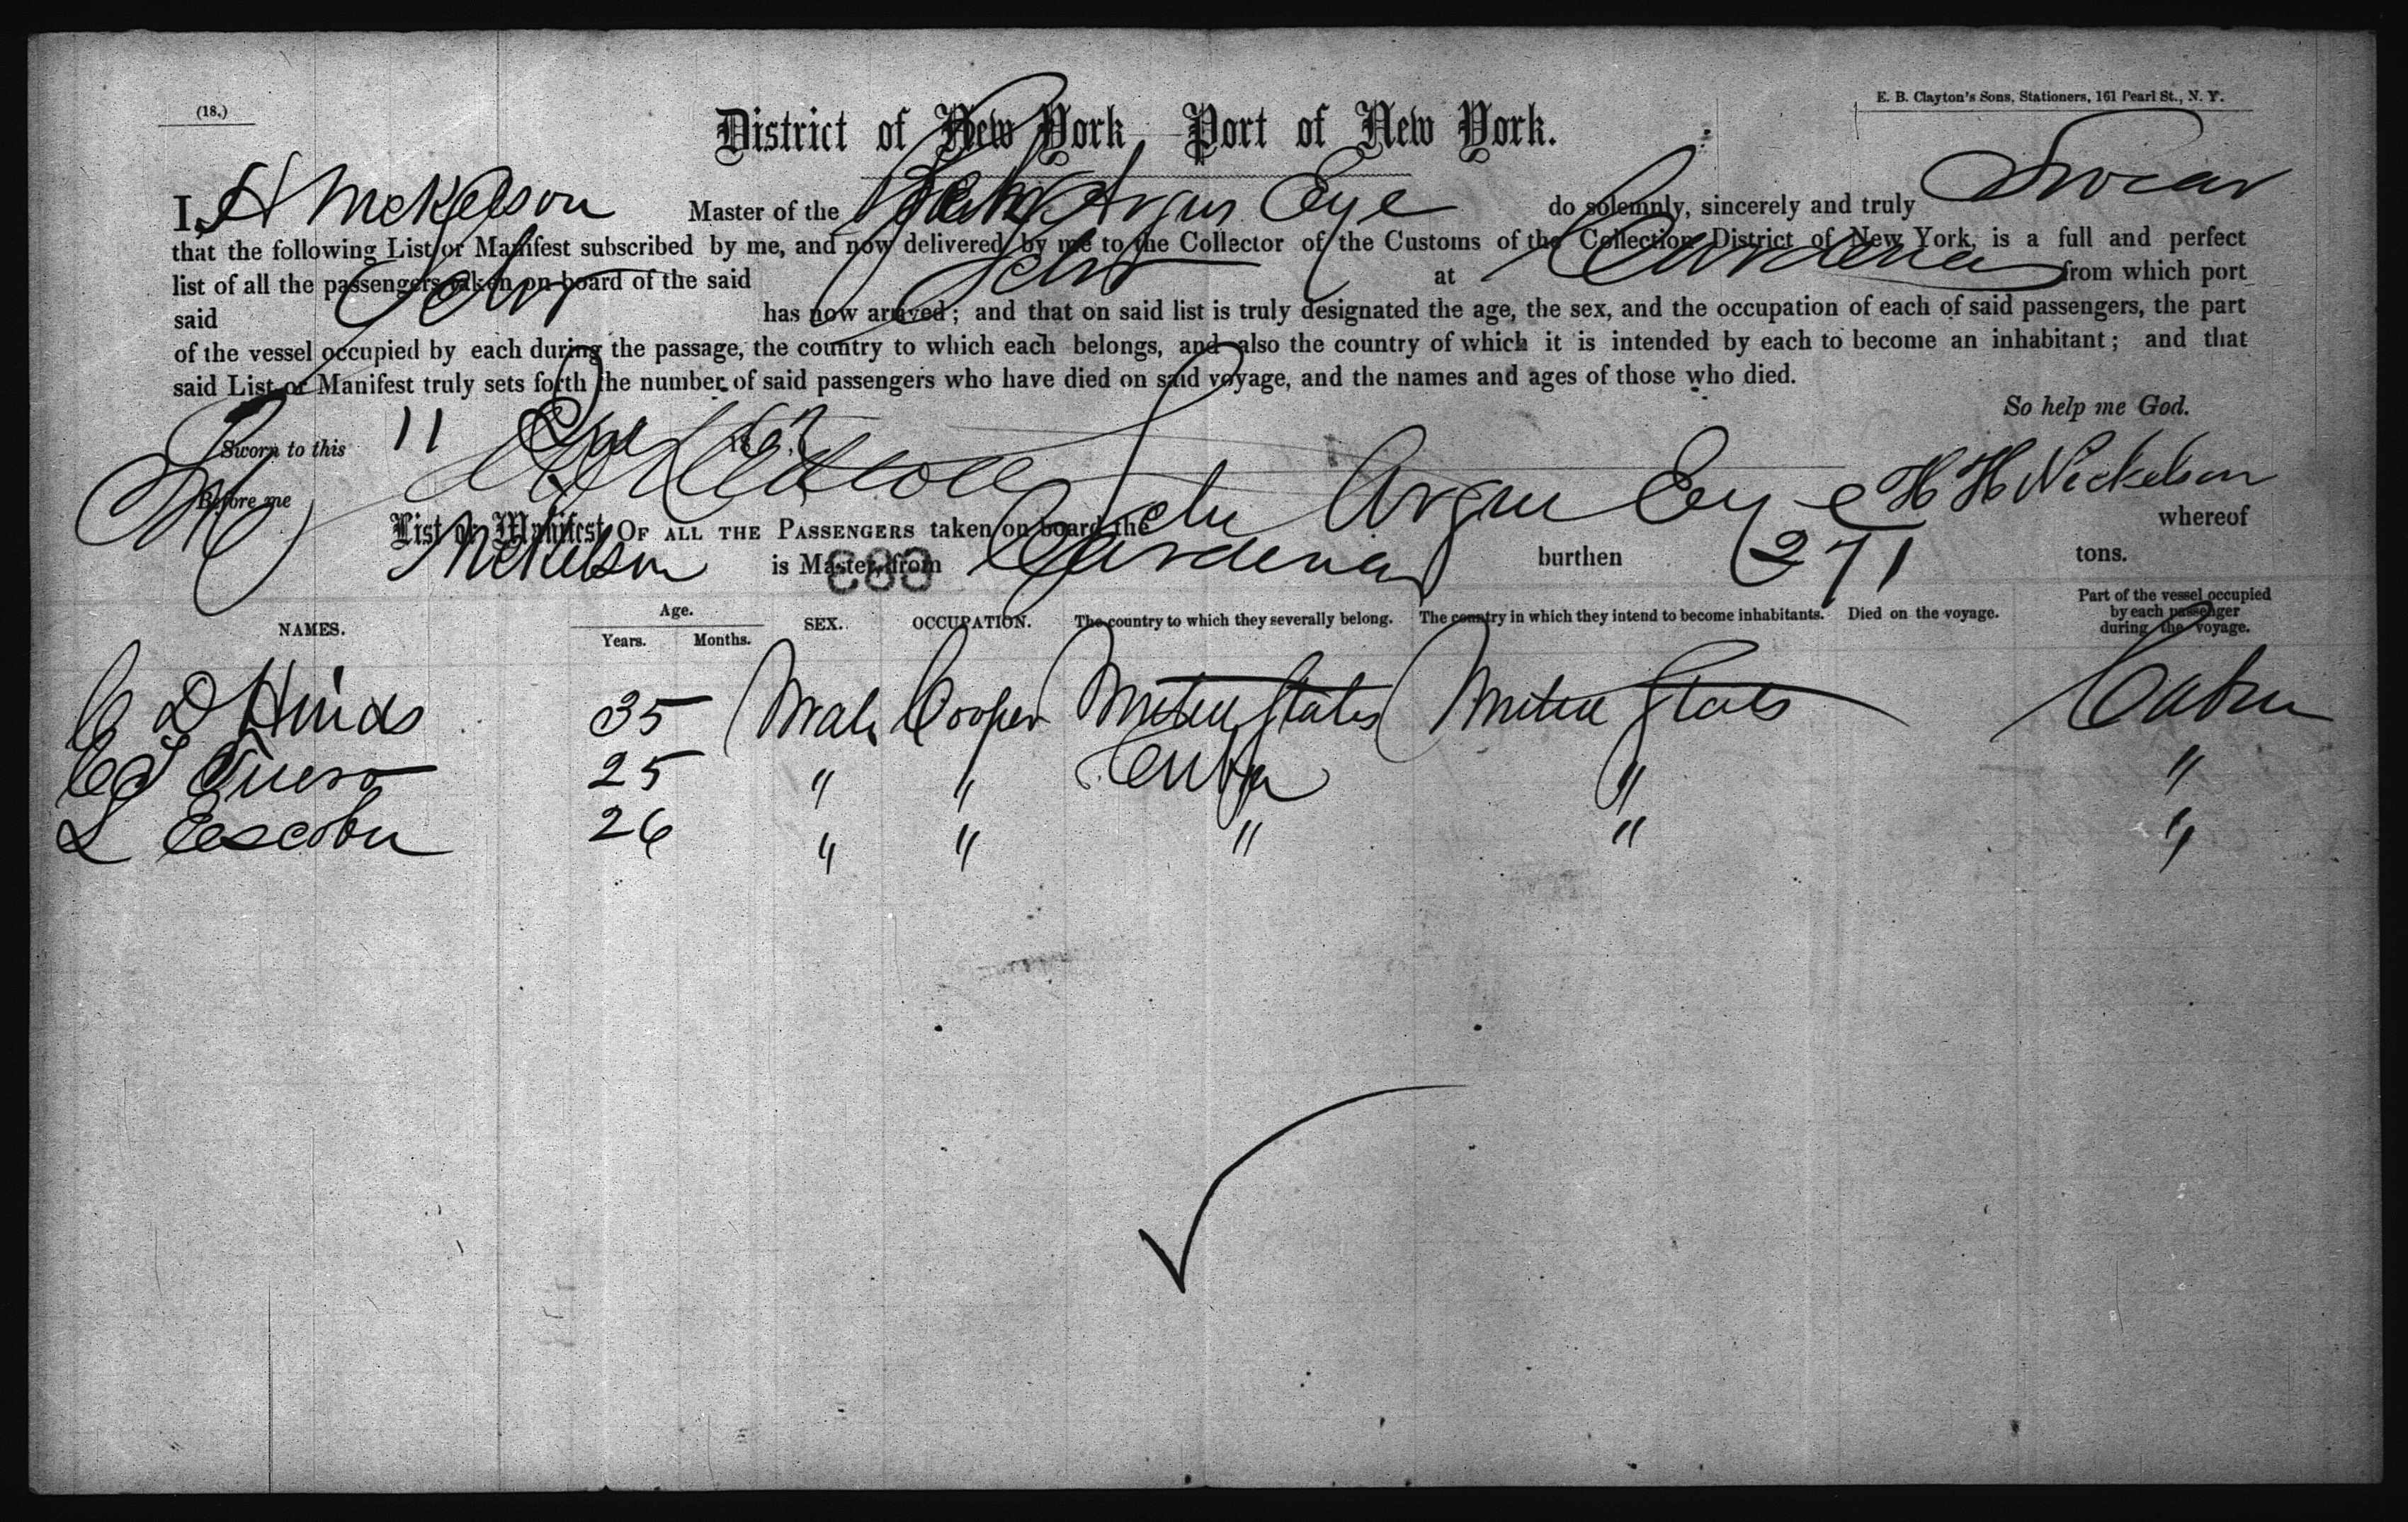 (18.)
E. B. Clayton's Sons, Stationers, 161 Pearl St., N. Y.
District of New York Port of New York.
I, H Mckelson Master of the Schr Argus Eye do solemnly, sincerely and truly Swear
that the following List or Manifest subscribed by me, and now delivered by me to the Collector of the Customs of the Collection District of New York, is a full and perfect
list of all the passengers taken on board of the said Schr at Cardenas from which port
said Schr has now arrived; and that on said list is truly designated the age, the sex, and the occupation of each of said passengers, the part
of the vessel occupied by each during the passage, the country to which each belongs, and also the country of which it is intended by each to become an inhabitant; and that
said List or Manifest truly sets forth the number of said passengers who have died on said voyage, and the names and ages of those who died.
So help me God.
Sworn to this 11 186
Before me
H H Nickelson
List or Manifest OF ALL THE PASSENGERS taken on board the Schr Argus Eye whereof
Mckelson is Master, from Cardenas burthen 271 tons.
NAMES. Age. Years. Months. SEX. OCCUPATION. The country to which they severally belong. The country in which they intend to become inhabitants. Died on the voyage. Part of the vessel occupied by each passenger during the voyage.
C D Hinds 35 Male Cooper United States United States Cabin
25 " " Cuba " "
L Escobar 26 " " " " "